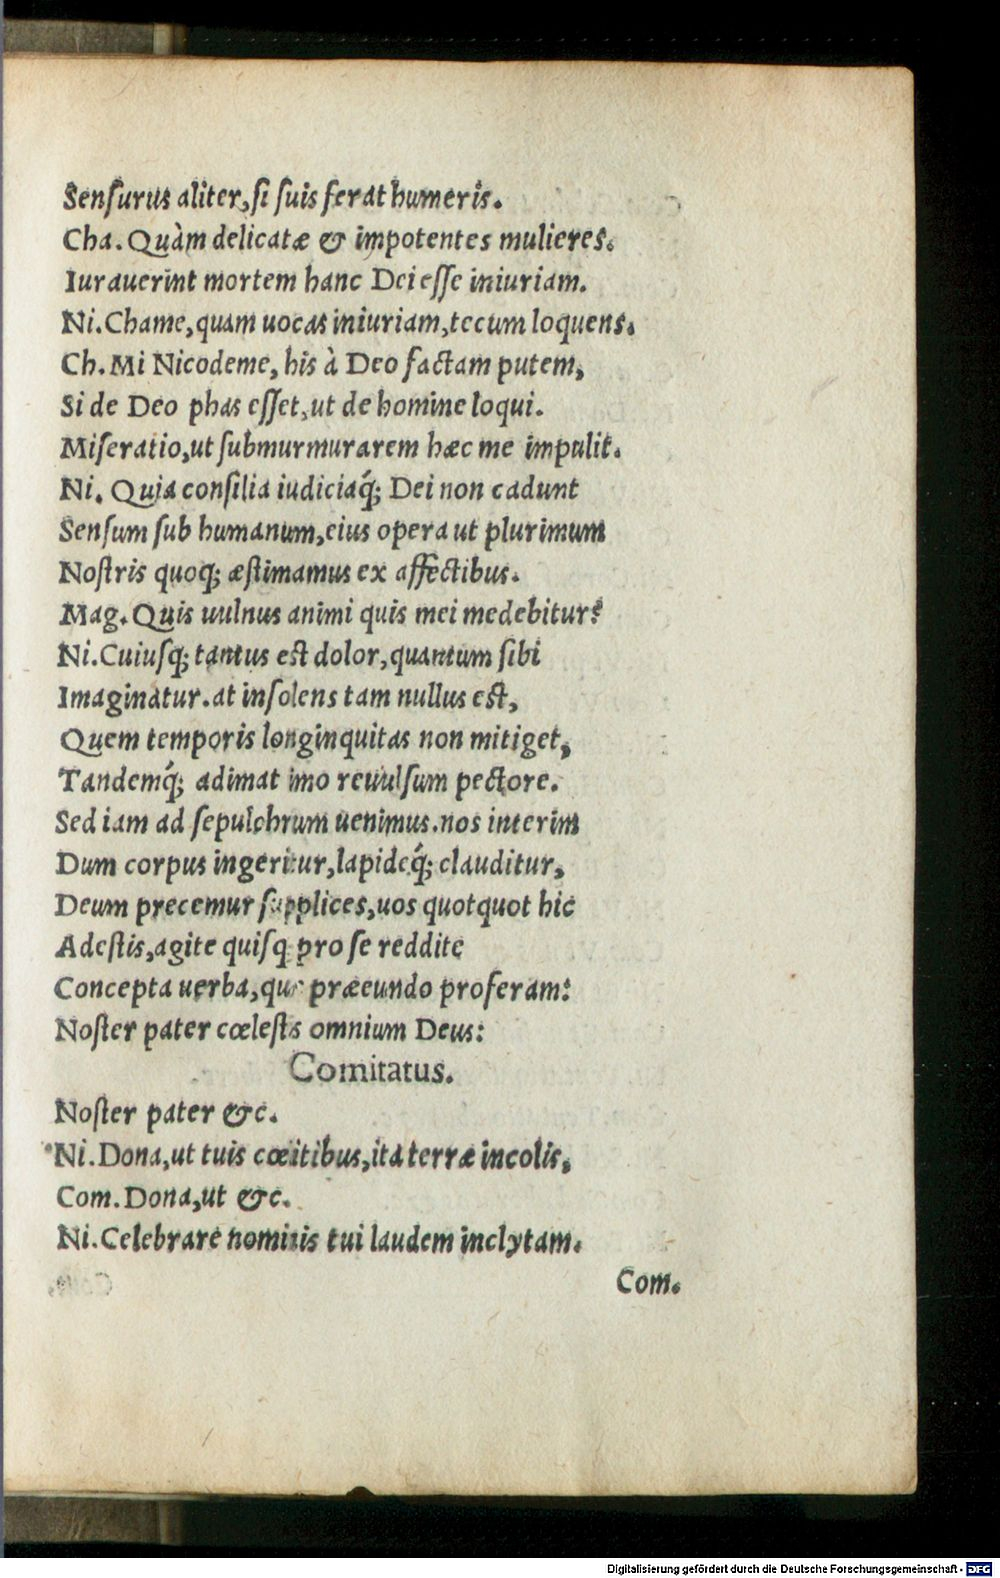 Senſurus aliter, ſi ſuis ferat humeris.
Cha. Quàm delicatæ & impotentes mulieres.
Iurauerint mortem hanc Dei eſſe iniuriam.
Ni. Chame, quam uocas iniuriam, tecum loquens.
Ch. Mi Nicodeme, his à Deo factam putem,
Si de Deo phas eſſet, ut de homine loqui.
Miſeratio, ut ſubmurmurarem hæc me impulit.
Ni. Quia conſilia iudiciaq́; Dei non cadunt
Senſum ſub humanum, eius opera ut plurimum
Noſtris quoq; æſtimamus ex affectibus.
Mag. Quis uulnus animi quis mei medebitur?
Ni. Cuiuſq; tantus eſt dolor, quantum ſibi
Imaginatur. at inſolens tam nullus eſt,
Quem temporis longinquitas non mitiget,
Tandemq́; adimat imo reuulſum pectore.
Sed iam ad ſepulchrum uenimus. nos interim
Dum corpus ingeritur, lapideq́; clauditur,
Deum precemur ſupplices, uos quotquot hic
Adeſtis, agite quiſq; pro ſe reddite
Concepta uerba, quæ præeundo proferam:
Noſter pater cœleſtis omnium Deus:
Comitatus.
Noſter pater &c.
Ni. Dona, ut tuis cœlitibus, ita terræ incolis,
Com. Dona, ut &c.
Ni. Celebrare nominis tui laudem inclytam.
Com.
Digitalisierung gefördert durch die Deutsche Forschungsgemeinschaft - DFG